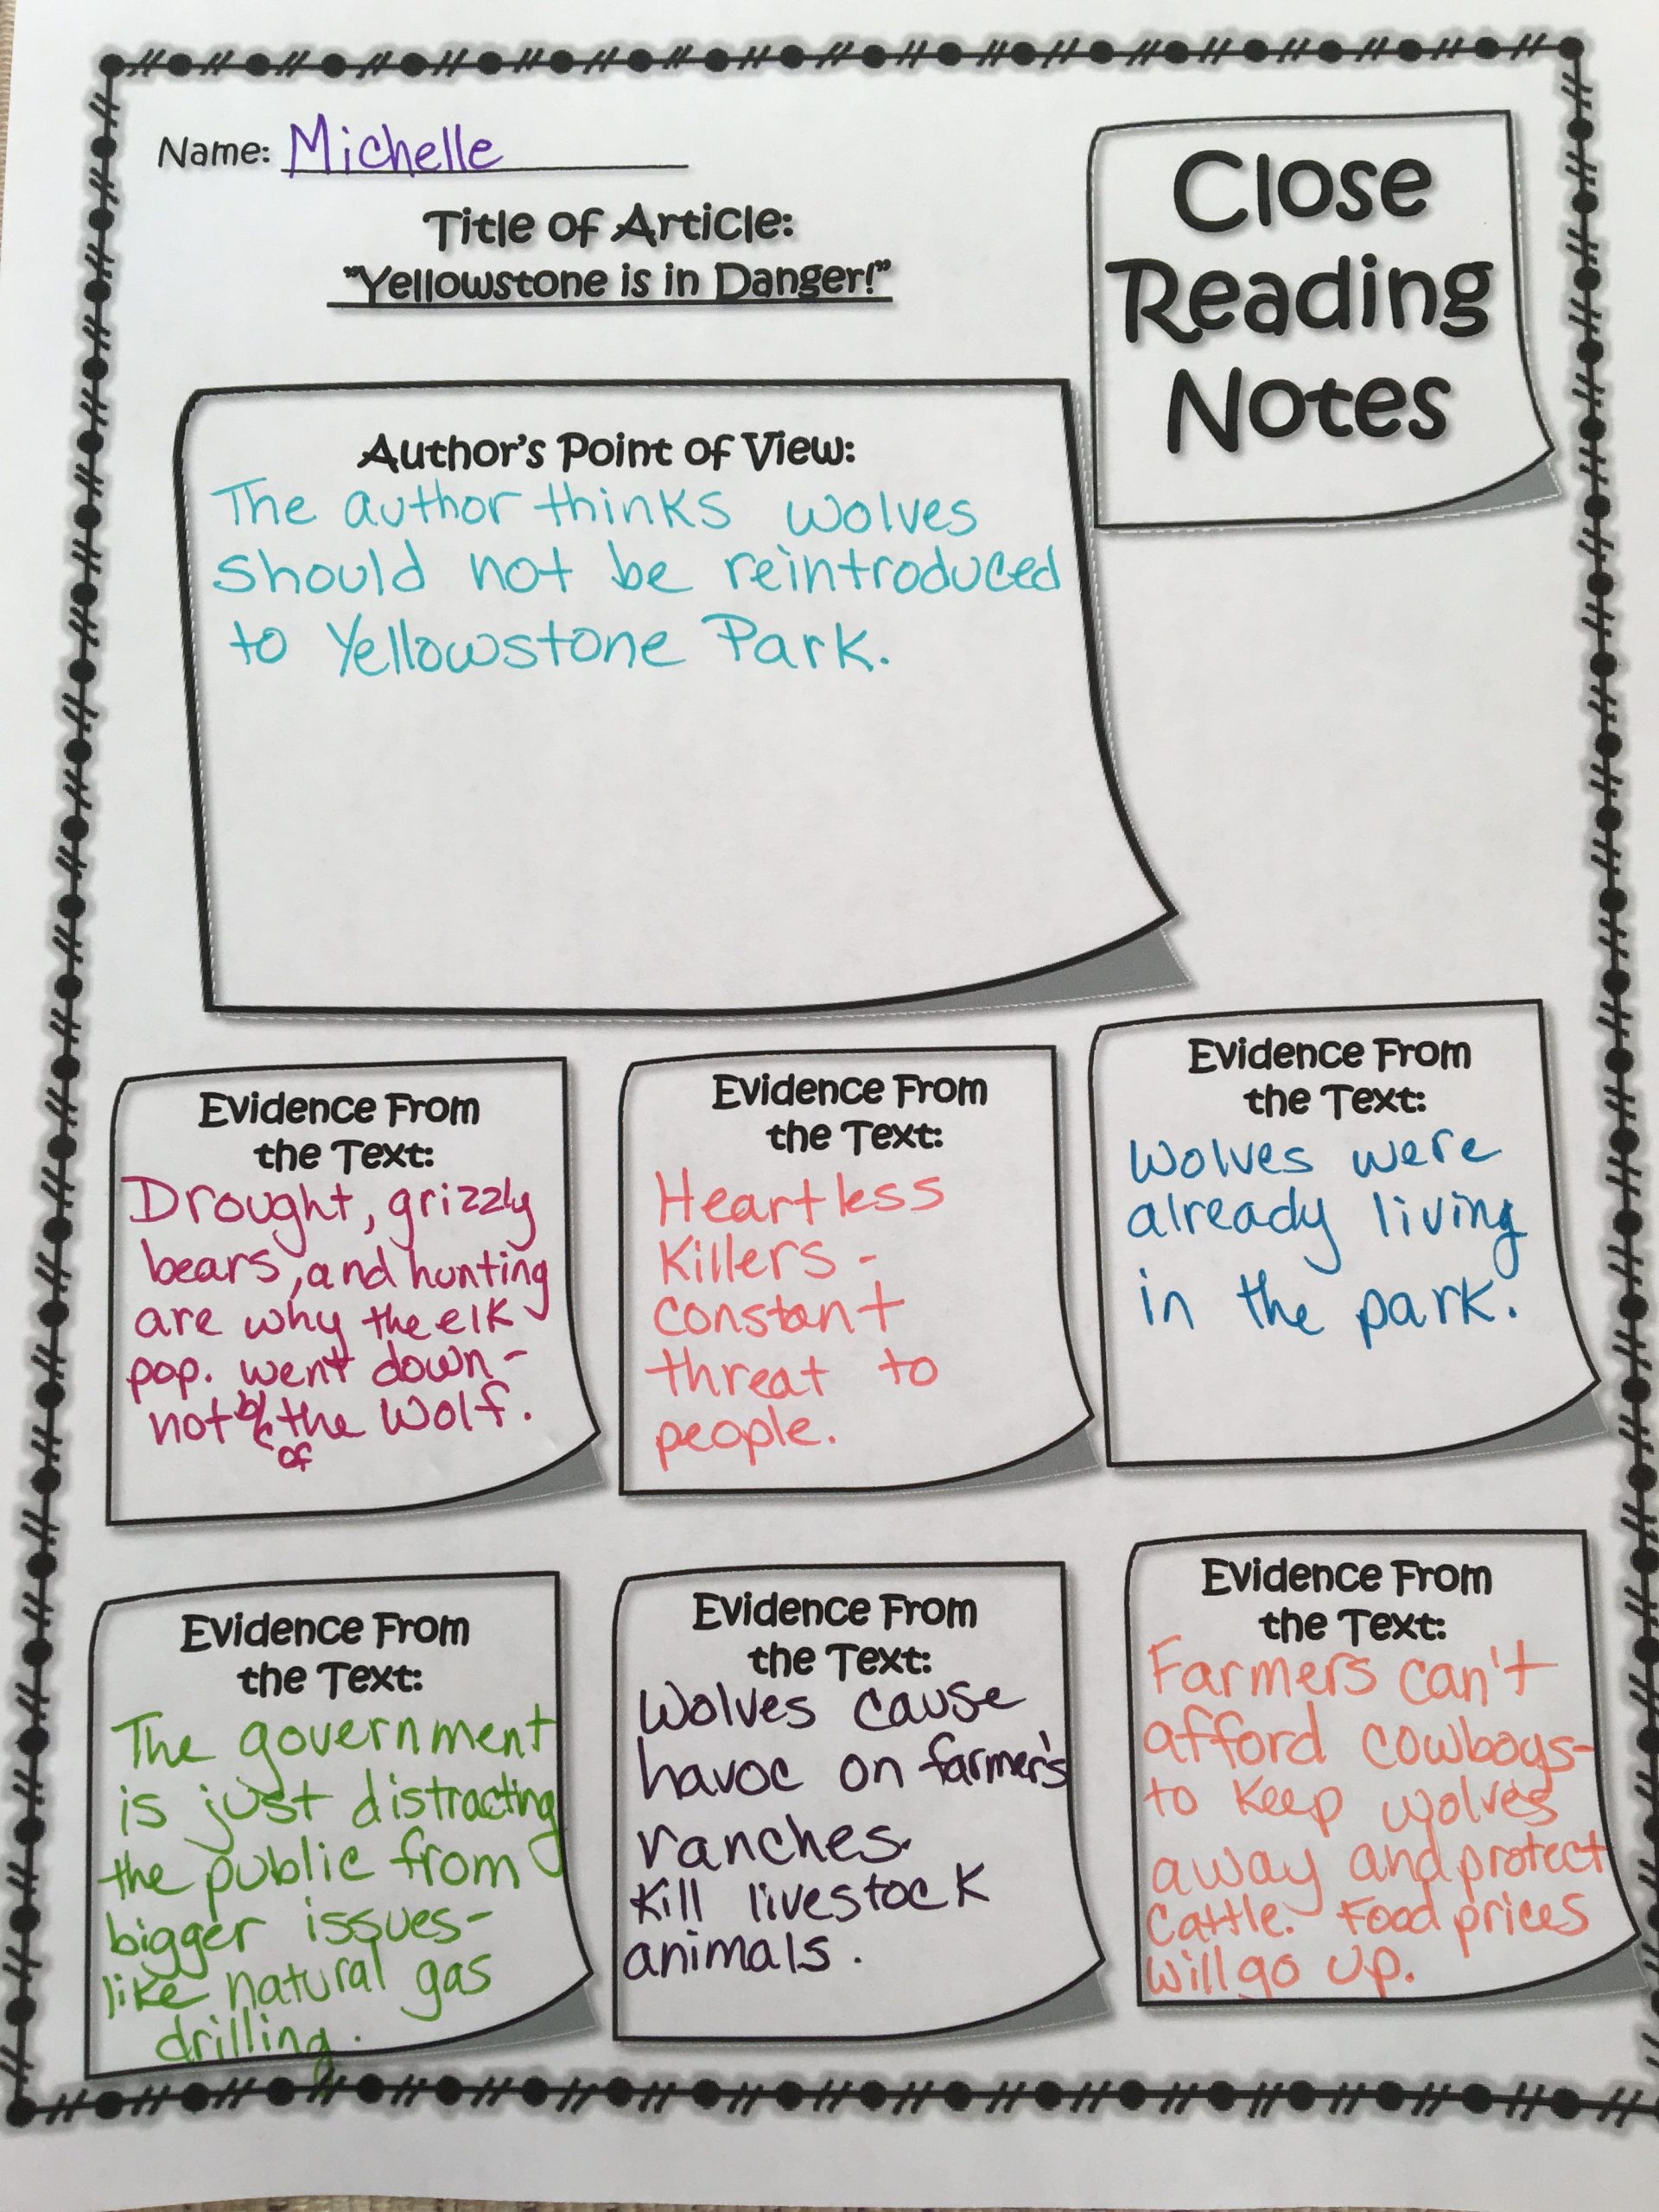 Name: Michelle
Title of Article:
"Yellowstone is in Danger!"
Close
Reading
Notes
Author's Point of View:
The author thinks wolves
should not be reintroduced
to Yellowstone Park.
Evidence From
the Text:
Drought, grizzly
bears, and hunting
are why the elk
pop. went down -
not b/c the wolf.
of
Evidence From
the Text:
Heartless
Killers -
constant
threat to
people.
Evidence From
the Text:
Wolves were
already living
in the park.
Evidence From
the Text:
The government
is just distracting
the public from
bigger issues-
like natural gas
drilling.
Evidence From
the Text:
Wolves cause
havoc on farmer's
ranches.
Kill livestock
animals.
Evidence From
the Text:
Farmers can't
afford cowboys-
to keep wolves
away and protect
cattle. Food prices
will go up.